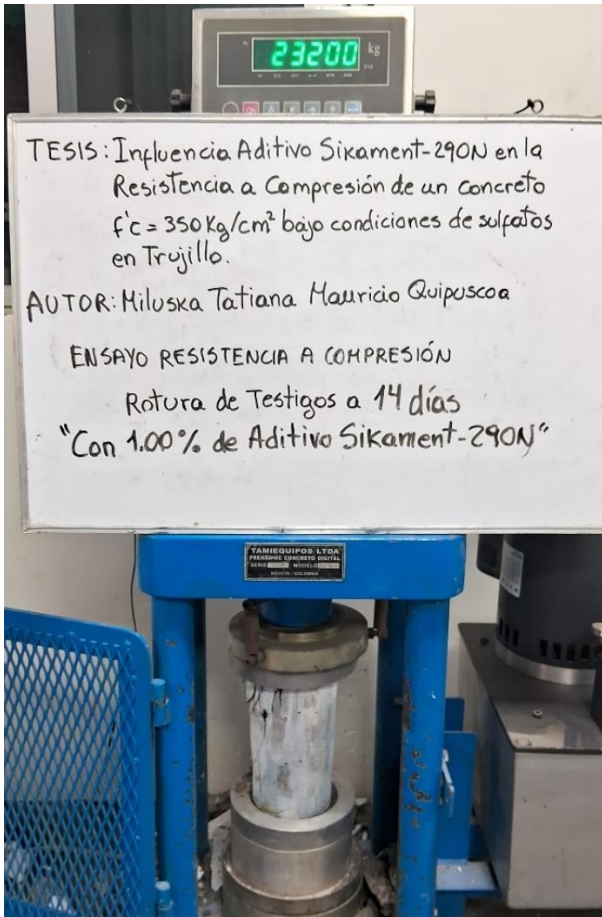 23200 kg
TESIS: Influencia Aditivo Sikament-290N en la
Resistencia a Compresión de un concreto
f'c = 350 Kg/cm² bajo condiciones de sulfatos
en Trujillo.
AUTOR: Miluska Tatiana Mauricio Quipuscoa
ENSAYO RESISTENCIA A COMPRESIÓN
Rotura de Testigos a 14 días
"Con 1.00% de Aditivo Sikament-290N"
TAMIEQUIPOS LTDA
PRENSA DE CONCRETO DIGITAL
SERIE MODELO
BOGOTA - COLOMBIA